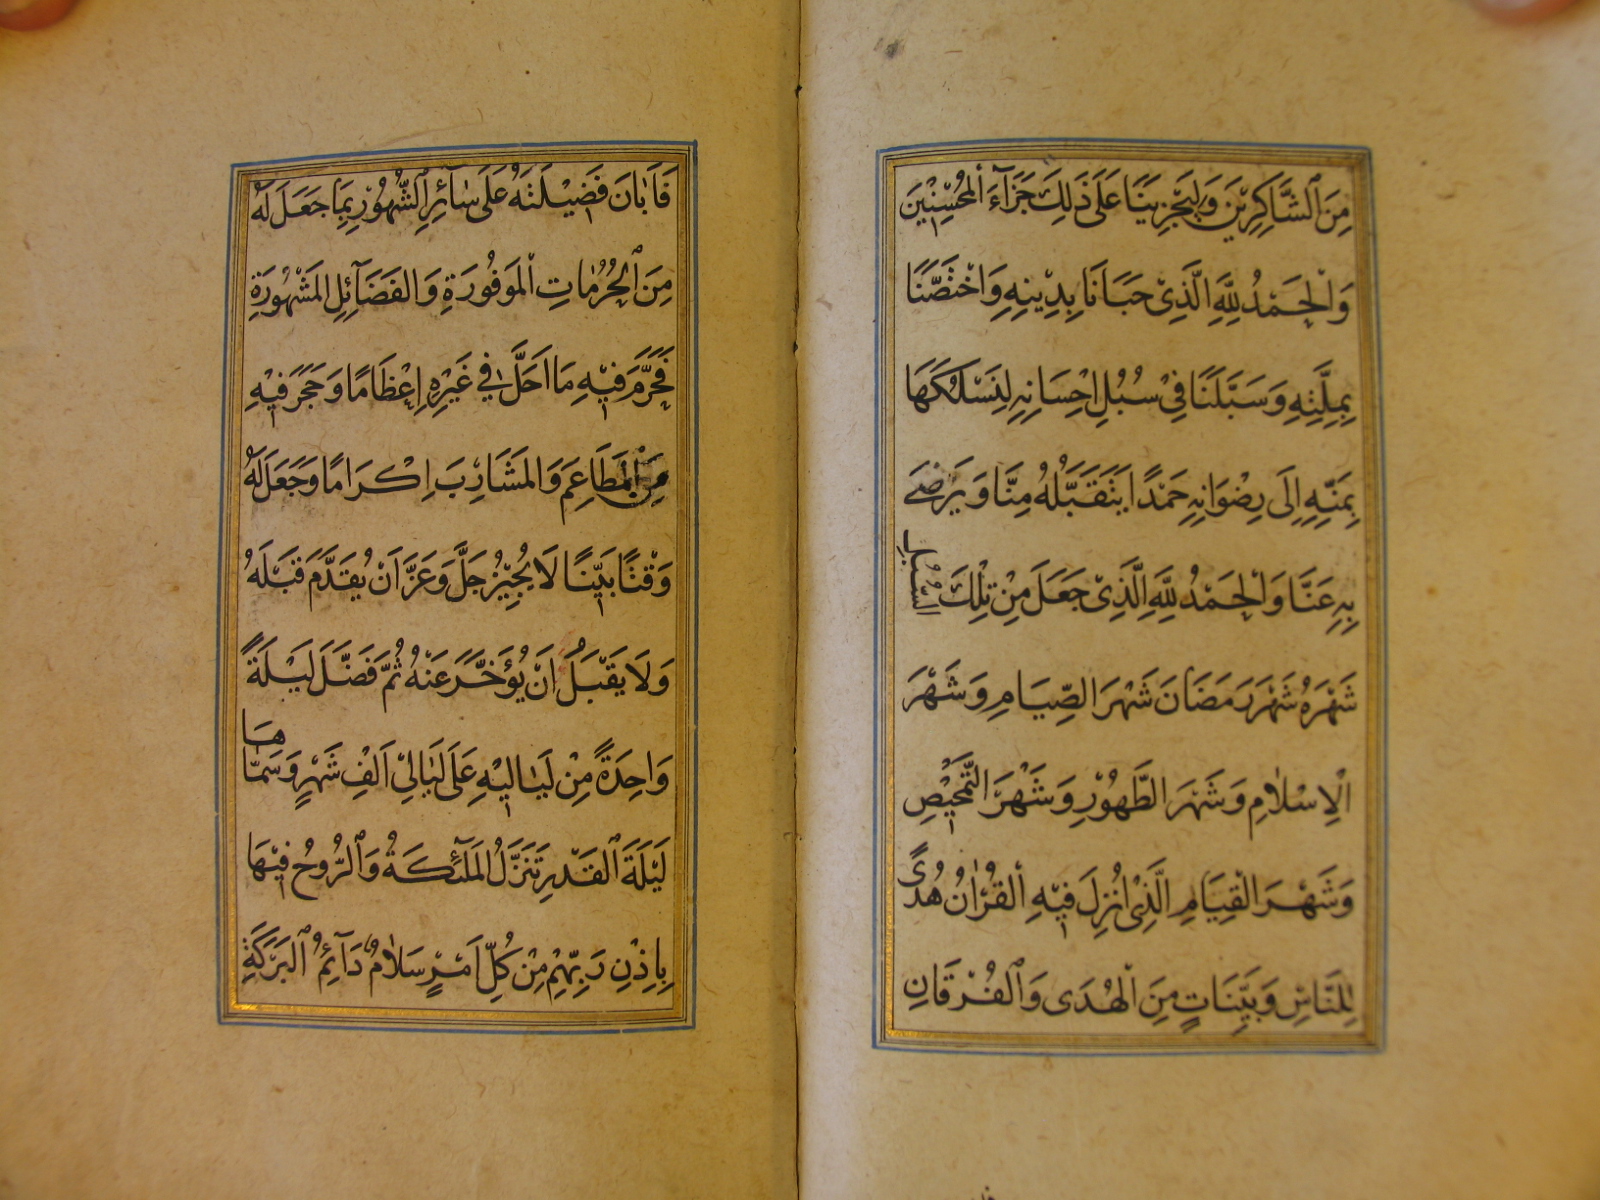 مِنَ ٱلشَّاكِرِيْنَ وَلِيَجْزِيَنَا عَلَى ذَلِكَ جَزَآءَ ٱلمُحْسِنِيْنَ
وَالْحَمْدُ لِلَّهِ الَّذِىْ حَبَانَا بِدِيْنِهِ وَاخْتَصَّنَا
بِمِلَّتِهِ وَسَبَّلَنَا فِىْ سُبُلِ اِحْسَانِهِ لِنَسْلُكَهَا
بِمَنِّهِ اِلَى رِضْوَانِهِ حَمْدًا يَتَقَبَّلُهُ مِنَّا وَيَرْضَى
بِهِ عَنَّا وَالْحَمْدُ لِلَّهِ الَّذِىْ جَعَلَ مِنْ تِلْكَ السُّبُلِ
شَهْرَهُ شَهْرَ رَمَضَانَ شَهْرَ الصِّيَامِ وَشَهْرَ
الْاِسْلَامِ وَشَهْرَ الطَّهُوْرِ وَشَهْرَ التَّمْحِيْصِ
وَشَهْرَ الْقِيَامِ الَّذِىْ اُنْزِلَ فِيْهِ الْقُرْاٰنُ هُدًى
لِلنَّاسِ وَبَيِّنَاتٍ مِنَ الْهُدَى وَٱلفُرْقَانِ
فَاَبَانَ فَضِيْلَتَهُ عَلَى سَآئِرِ ٱلشُّهُوْرِ بِمَا جَعَلَ لَهُ
مِنَ ٱلحُرُمَاتِ الْمَوْفُورَةِ وَالفَضَآئِلِ المَشْهُورَةِ
فَحَرَّمَ فِيْهِ مَا اَحَلَّ فِي غَيْرِهِ اِعْظَامًا وَحَجَرَ فِيْهِ
مِنَ ٱلمَطَاعِمَ وَالمَشَارِبَ اِكْرَامًا وَجَعَلَ لَهُ
وَقْتًا بَيِّنًا لَا يُجِيْزُ جَلَّ وَعَزَّ اَنْ يُقَدَّمَ قَبْلَهُ
وَلَا يَقْبَلُ اَنْ يُؤَخَّرَ عَنْهُ ثُمَّ فَضَّلَ لَيْلَةً
وَاحِدَةً مِنْ لَيَالِيْهِ عَلَى لَيَالِيْ اَلْفِ شَهْرٍ وَسَمَّاهَا
لَيْلَةَ ٱلقَدْرِ تَنَزَّلُ المَلٰٓئِكَةُ وَٱلرُّوحُ فِيْهَا
بِاِذْنِ رَبِّهِمْ مِنْ كُلِّ اَمْرٍ سَلَامٌ دَآئِمُ ٱلبَرَكَةِ